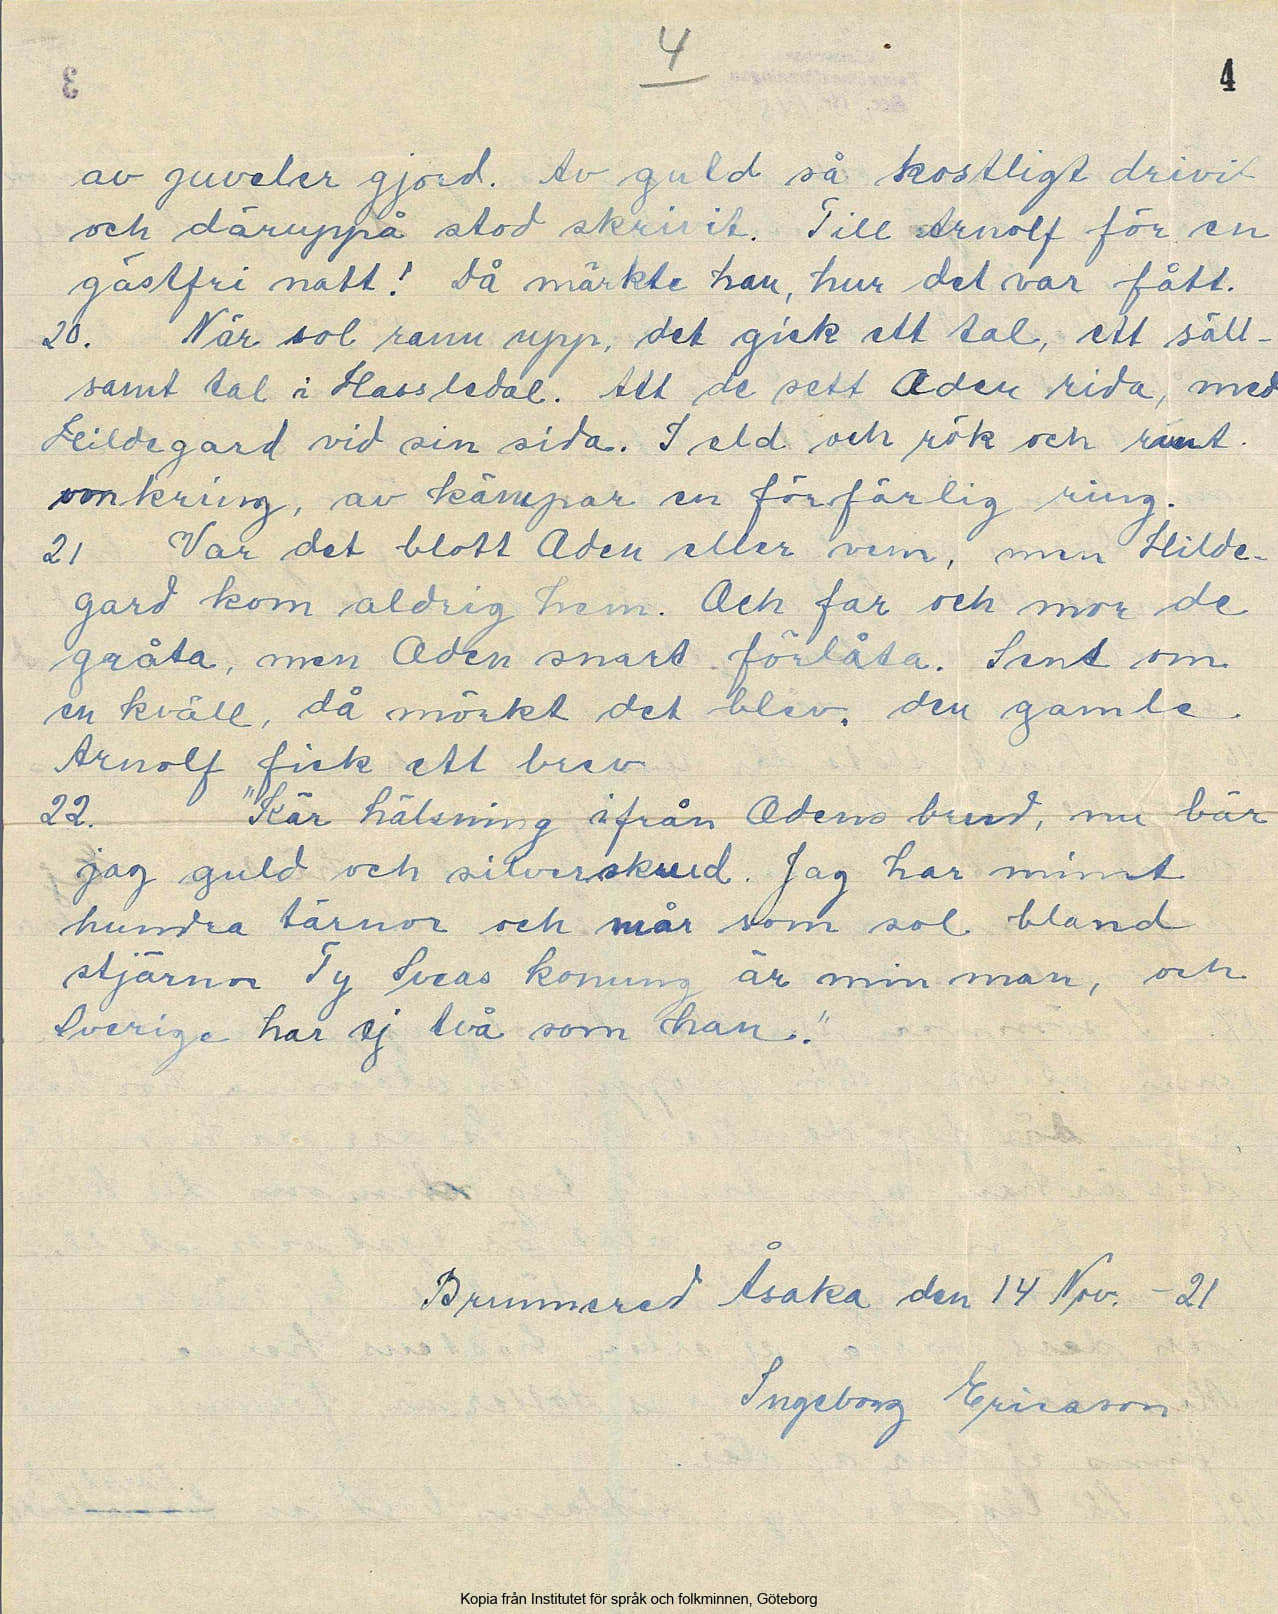 4
4
av juveler gjord. Av guld så kostligt drivit
och däruppå stod skrivit. Till Arnolf för en
gästfri natt! Då märkte han, hur det var fått.
20. När sol rann upp, det gick ett tal, ett säll-
samt tal i Hassledal. Att de sett Oden rida, med
Hildegard vid sin sida. I eld och rök och runt
omkring, av kämpar en förfärlig ring.
21 Var det blott Oden eller vem, men Hilde-
gard kom aldrig hem. Och far och mor de
gråta, men Oden snart förlåta. Sent om
en kväll, då mörkt det blev, den gamle
Arnolf fick ett brev
22. "Kär hälsning ifrån Odens brud, nu bär
jag guld och silverskrud. Jag har minst
hundra tärnor och mår som sol bland
stjärnor Ty Sveas konung är min man, och
Sverige har ej två som han."
Brunnered Åsaka den 14 Nov. - 21
Ingeborg Ericsson
Kopia från Institutet för språk och folkminnen, Göteborg